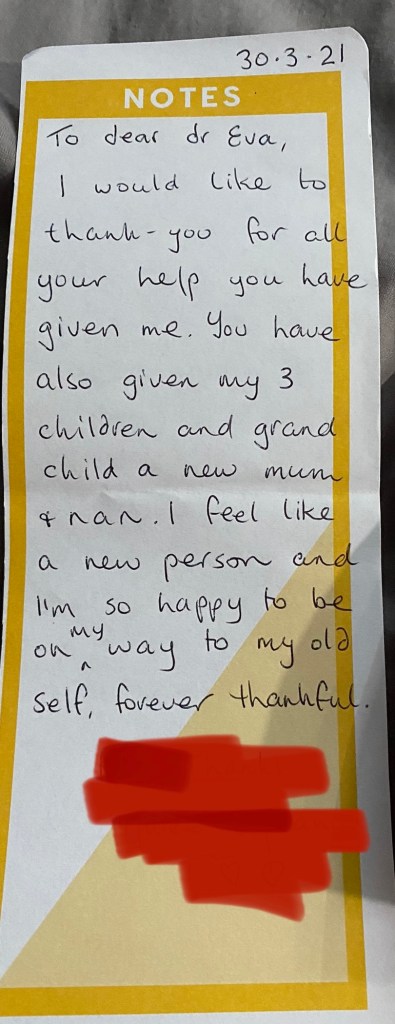 30.3.21
NOTES
To dear dr Eva,
I would like to
thank-you for all
your help you have
given me. You have
also given my 3
children and grand
child a new mum
& nan. I feel like
a new person and
I'm so happy to be
on my way to my old
self, forever thankful.